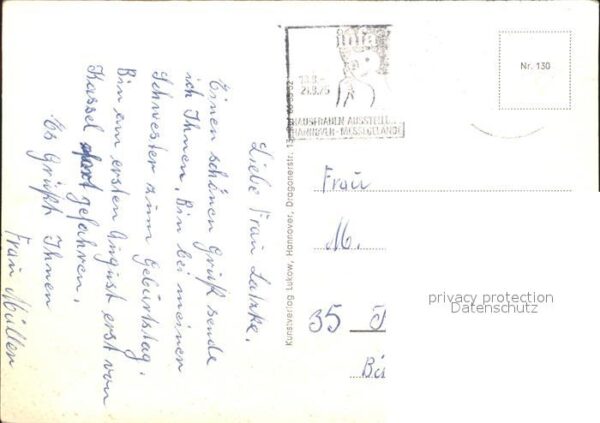 Liebe Frau Latzke.
Einen schönen Gruß sende
ich Ihnen. Bin bei meinen
Schwester zum Geburtstag.
Bin am ersten August erst von
Kassel gefahren.
Es Grüßt Ihnen
Frau Müller
infa
13.9.-
21.9.75
HAUSFRAUEN AUSSTELL
HANNOVER-MESSEGELÄNDE
Nr. 130
Kunstverlag Lukow, Hannover, Dragonerstr.
Frau
M.
35
privacy protection
Datenschutz